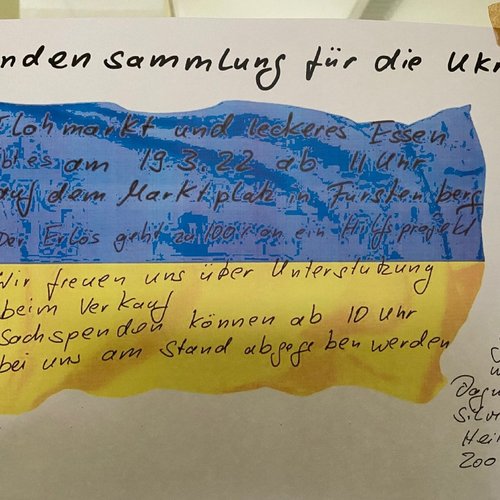 ndensammlung für die Ukr
Flohmarkt und leckeres Essen
am 19.3.22 ab 11 Uhr
auf dem Marktplatz in Fürstenberg
Der Erlös geht zu 100% an ein Hilfsprojekt
Wir freuen uns über Unterstützung
beim Verkauf
Sachspenden können ab 10 Uhr
bei uns am Stand abgegeben werden
Dagm
Silv
Hei
200